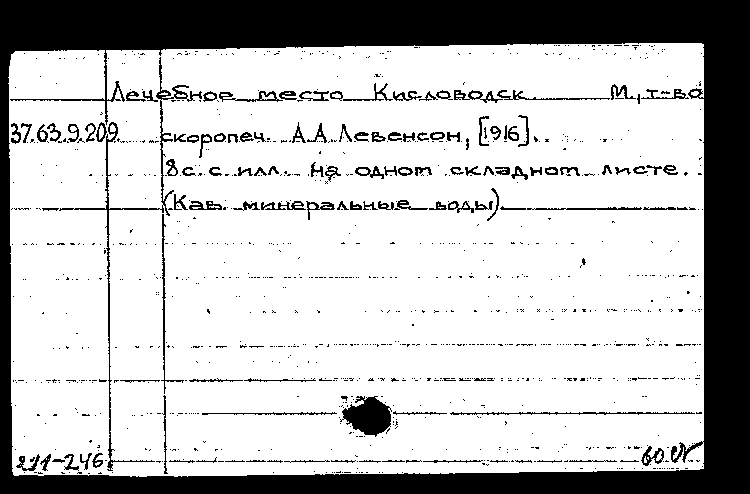 Лечебное место Кисловодск М., т-во
37.63.9.209 скоропеч. А.А. Левенсон, [1916].
8 с. с илл. на одном складном листе.
(Кав. минеральные воды).
211-246